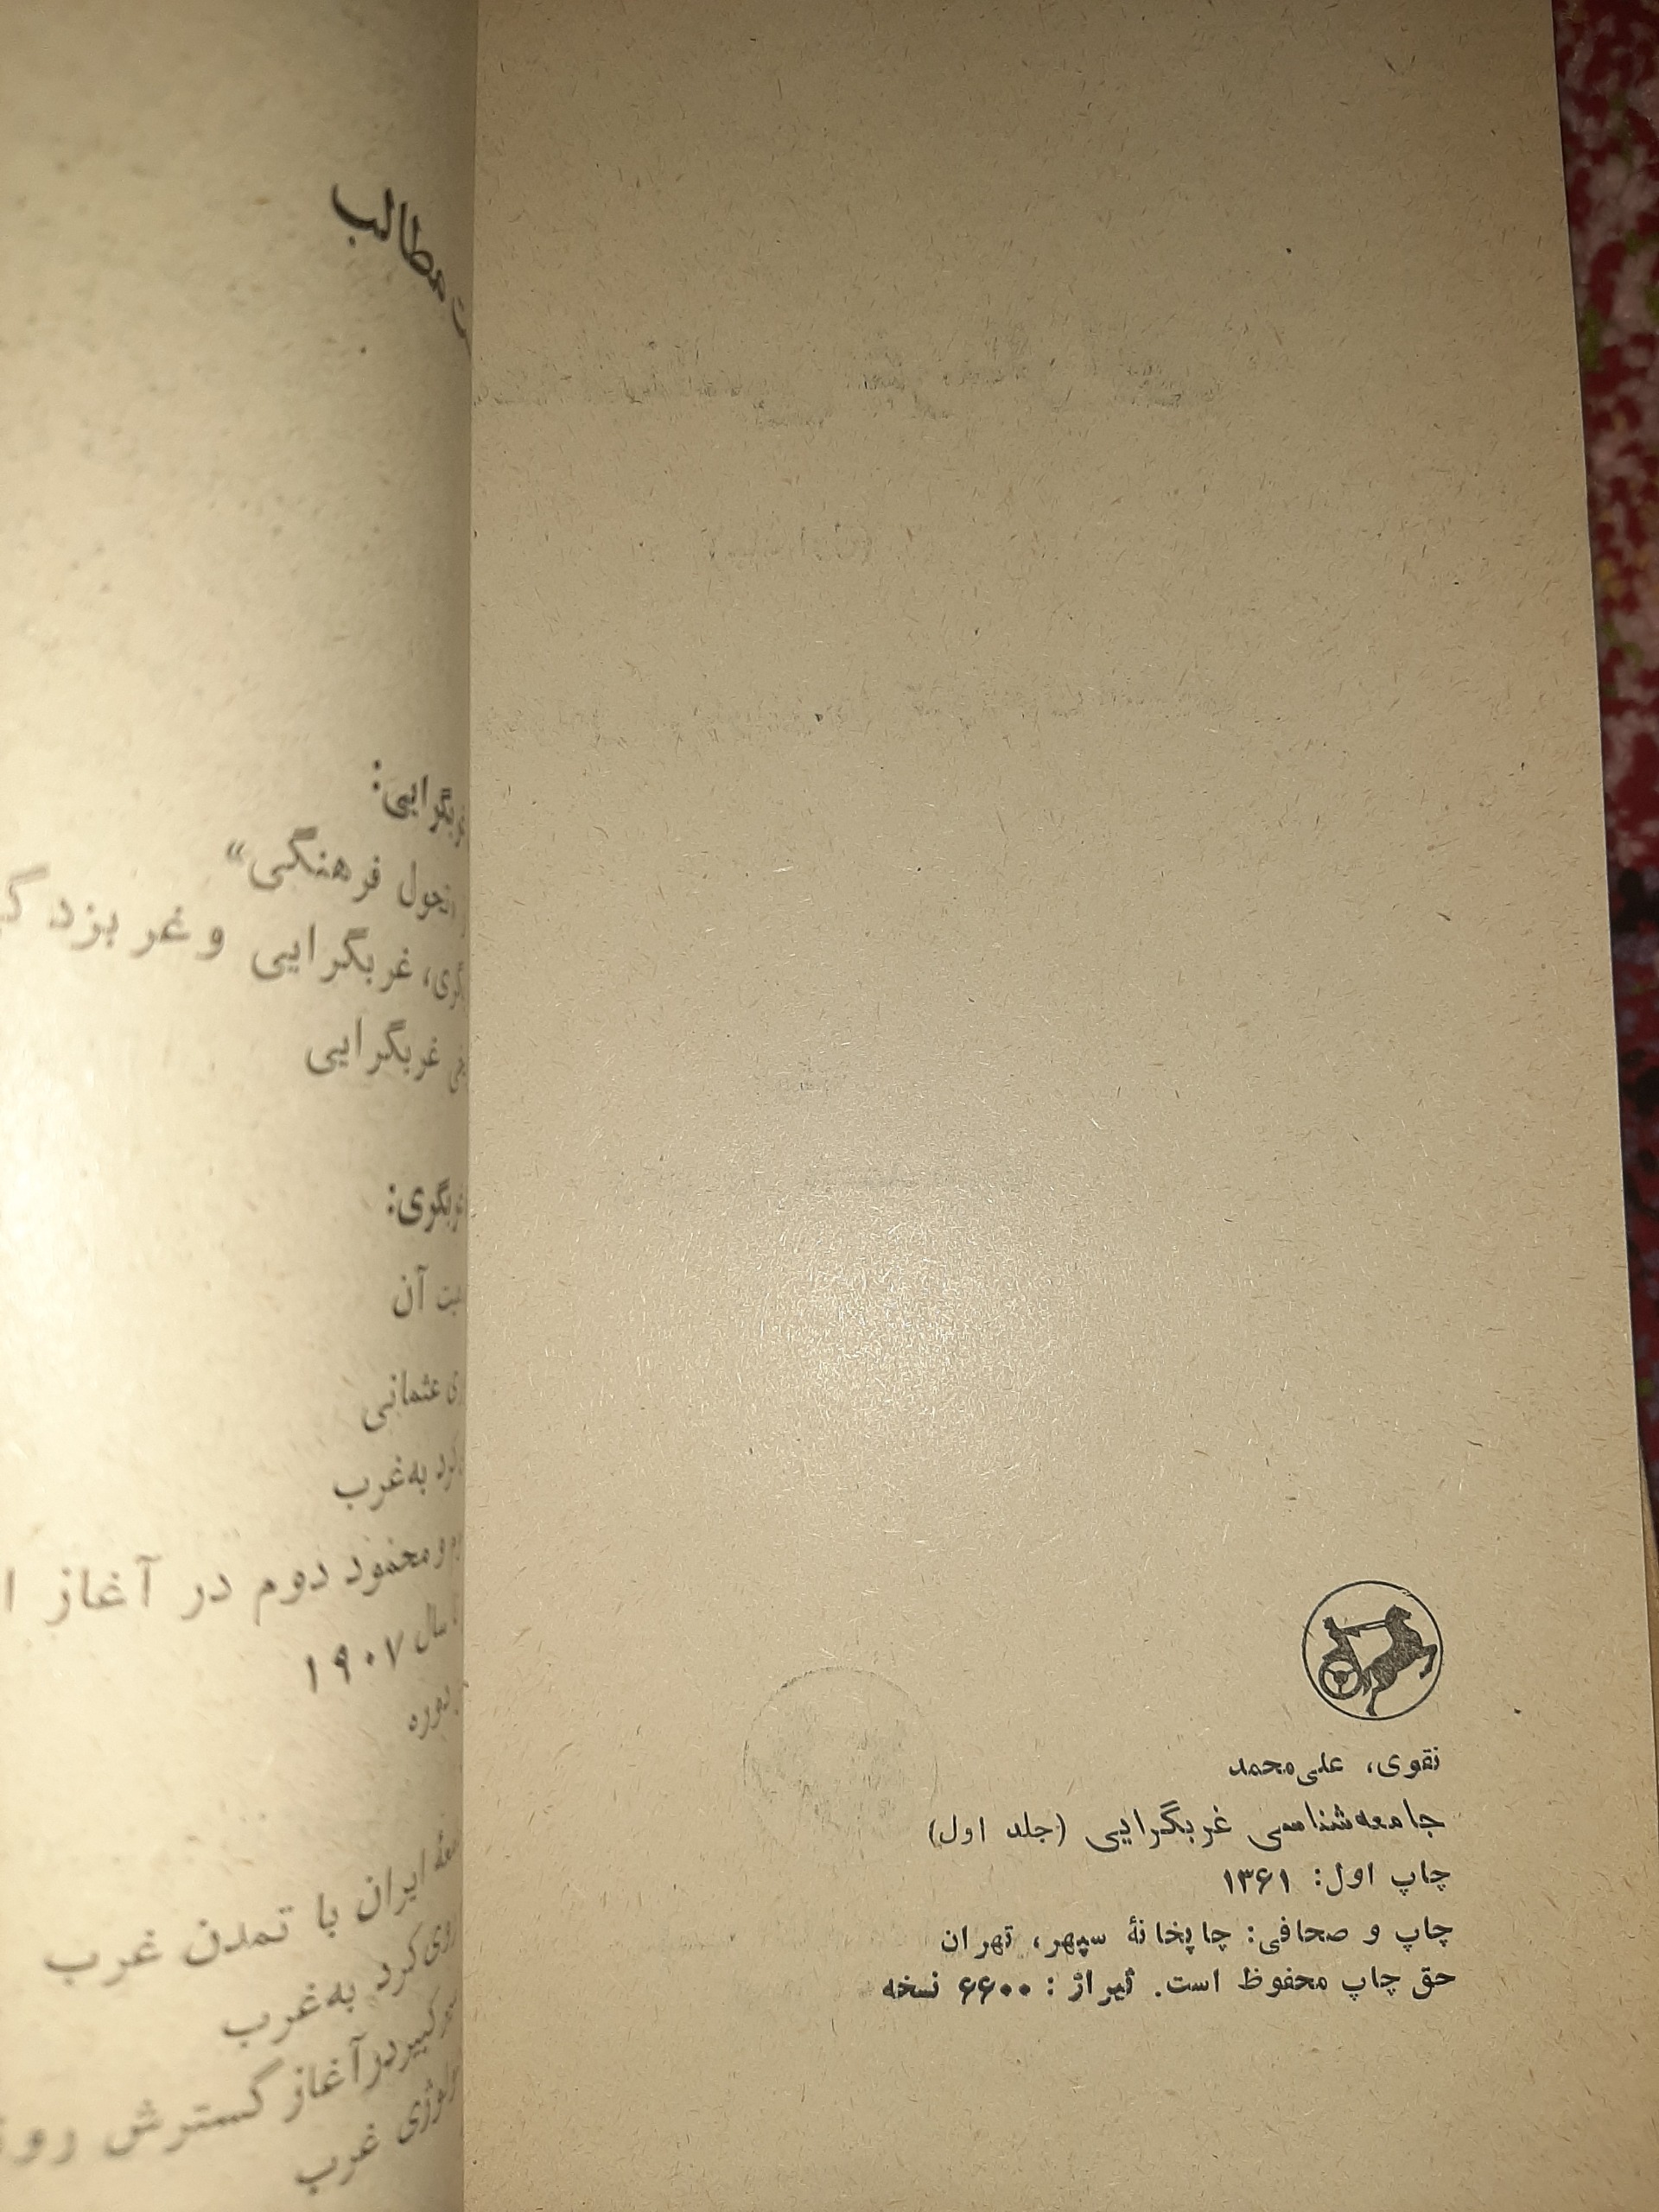 نقوی، علی‌محمد
جامعه‌شناسی غربگرایی (جلد اول)
چاپ اول: ۱۳۶۱
چاپ و صحافی: چاپخانهٔ سپهر، تهران
حق چاپ محفوظ است. تیراژ: ۶۶۰۰ نسخه
مطالب
فرهنگی»
غربگرایی و غربزدگی
غربگرایی
آن
عثمانی
به‌غرب
و محمود دوم در آغاز
سال ۱۹۰۷
ایران با تمدن غرب
روی‌کرد به‌غرب
در آغاز گسترش
غرب